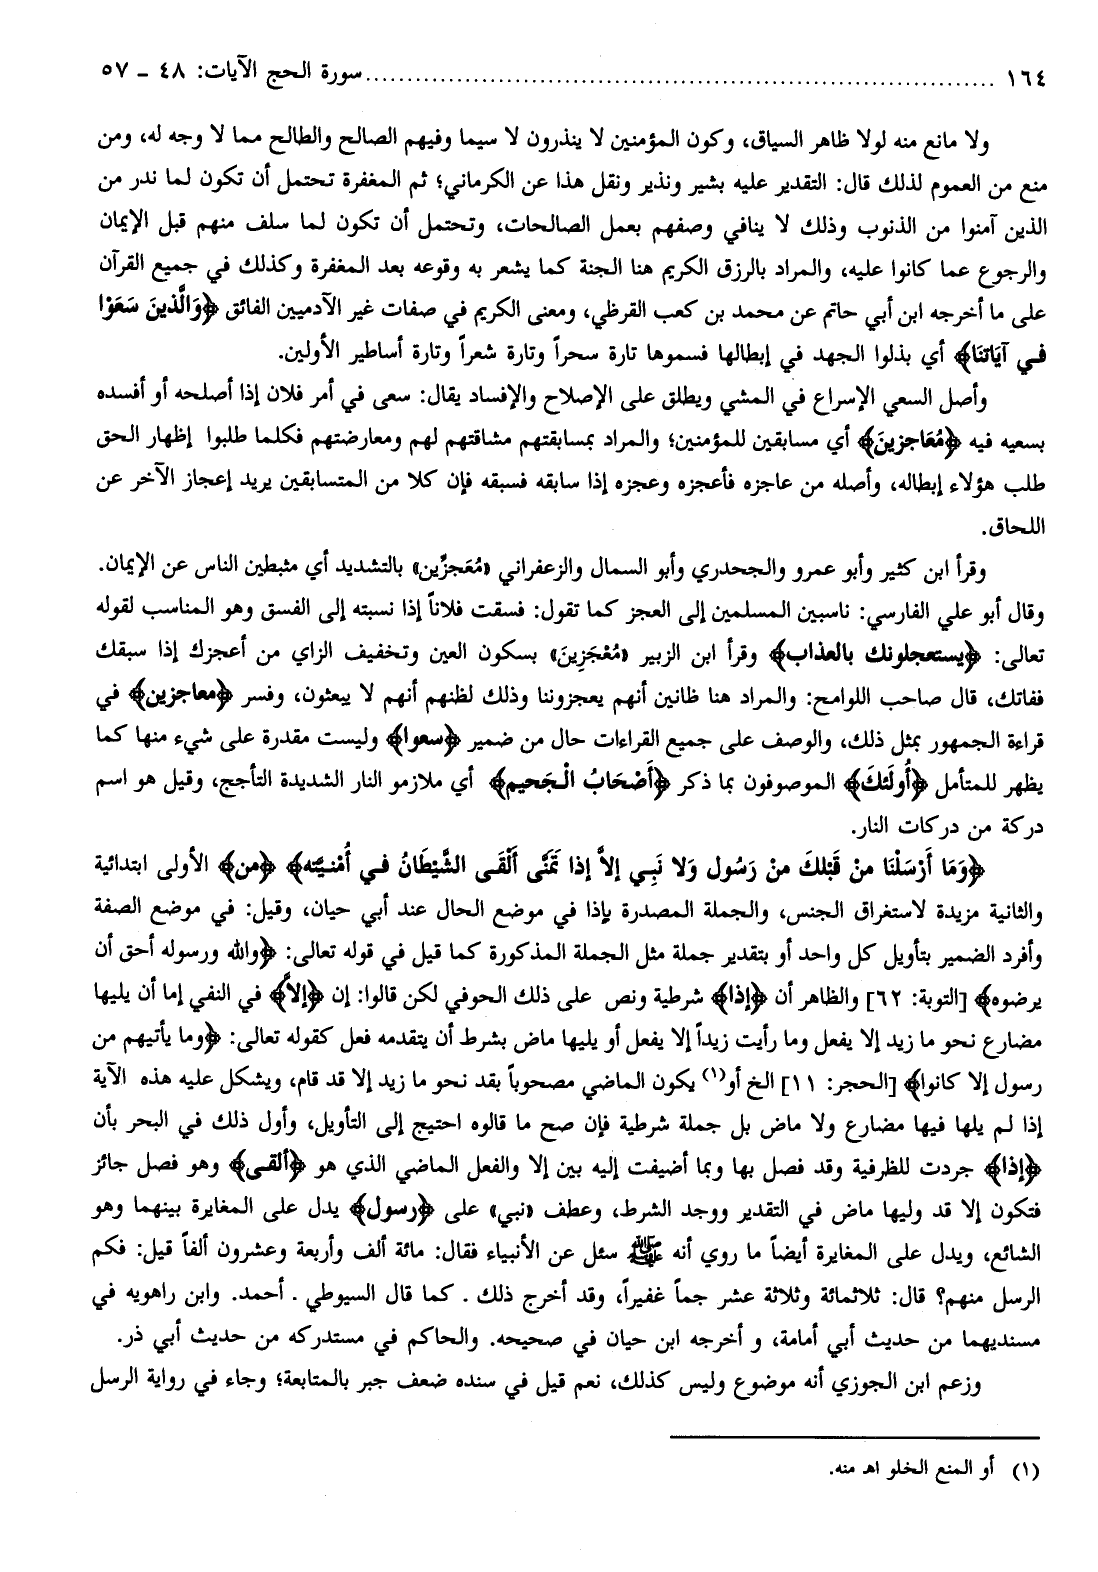 ١٦٤ ........................ سورة الحج الآيات: ٤٨ - ٥٧
ولا مانع منه لولا ظاهر السياق، وكون المؤمنين لا ينذرون لا سيما وفيهم الصالح والطالح مما لا وجه له، ومن
منع من العموم لذلك قال: التقدير عليه بشير ونذير ونقل هذا عن الكرماني؛ ثم المغفرة تحتمل أن تكون لما ندر من
الذين آمنوا من الذنوب وذلك لا ينافي وصفهم بعمل الصالحات، وتحتمل أن تكون لما سلف منهم قبل الإيمان
والرجوع عما كانوا عليه، والمراد بالرزق الكريم هنا الجنة كما يشعر به وقوعه بعد المغفرة وكذلك في جميع القرآن
على ما أخرجه ابن أبي حاتم عن محمد بن كعب القرظي، ومعنى الكريم في صفات غير الآدميين الفائق ﴿وَالَّذينَ سَعَوْا
في آيَاتنَا﴾ أي بذلوا الجهد في إبطالها فسموها تارة سحراً وتارة شعراً وتارة أساطير الأولين.
وأصل السعي الإسراع في المشي ويطلق على الإصلاح والإفساد يقال: سعى في أمر فلان إذا أصلحه أو أفسده
بسعيه فيه ﴿مُعَاجزينَ﴾ أي مسابقين للمؤمنين؛ والمراد بمسابقتهم مشاقتهم لهم ومعارضتهم فكلما طلبوا إظهار الحق
طلب هؤلاء إبطاله، وأصله من عاجزه فأعجزه وعجزه إذا سابقه فسبقه فإن كلا من المتسابقين يريد إعجاز الآخر عن
اللحاق.
وقرأ ابن كثير وأبو عمرو والجحدري وأبو السمال والزعفراني «مُعَجزِّين» بالتشديد أي مثبطين الناس عن الإيمان.
وقال أبو علي الفارسي: ناسبين المسلمين إلى العجز كما تقول: فسقت فلاناً إذا نسبته إلى الفسق وهو المناسب لقوله
تعالى: ﴿يستعجلونك بالعذاب﴾ وقرأ ابن الزبير «مُعْجَزِينَ» بسكون العين وتخفيف الزاي من أعجزك إذا سبقك
ففاتك، قال صاحب اللوامح: والمراد هنا ظانين أنهم يعجزوننا وذلك لظنهم أنهم لا يبعثون، وفسر ﴿معاجزين﴾ في
قراءة الجمهور بمثل ذلك، والوصف على جميع القراءات حال من ضمير ﴿سعوا﴾ وليست مقدرة على شيء منها كما
يظهر للمتأمل ﴿أُولَئكَ﴾ الموصوفون بما ذكر ﴿أَصْحَابُ الْجَحيم﴾ أي ملازمو النار الشديدة التأجج، وقيل هو اسم
دركة من دركات النار.
﴿وَمَا أَرْسَلْنَا منْ قَبْلكَ منْ رَسُول وَلا نَبِي إلاَّ إذا تَمَنَّى أَلْقَى الشَّيْطَانُ في أُمْنيَّته﴾ ﴿من﴾ الأولى ابتدائية
والثانية مزيدة لاستغراق الجنس، والجملة المصدرة بإذا في موضع الحال عند أبي حيان، وقيل: في موضع الصفة
وأفرد الضمير بتأويل كل واحد أو بتقدير جملة مثل الجملة المذكورة كما قيل في قوله تعالى: ﴿والله ورسوله أحق أن
يرضوه﴾ [التوبة: ٦٢] والظاهر أن ﴿إذا﴾ شرطية ونص على ذلك الحوفي لكن قالوا: إن ﴿إلاَّ﴾ في النفي إما أن يليها
مضارع نحو ما زيد إلا يفعل وما رأيت زيداً إلا يفعل أو يليها ماض بشرط أن يتقدمه فعل كقوله تعالى: ﴿وما يأتيهم من
رسول إلا كانوا﴾ [الحجر: ١١] الخ أو(١) يكون الماضي مصحوباً بقد نحو ما زيد إلا قد قام، ويشكل عليه هذه الآية
إذا لم يلها فيها مضارع ولا ماض بل جملة شرطية فإن صح ما قالوه احتيج إلى التأويل، وأول ذلك في البحر بأن
﴿إذا﴾ جردت للظرفية وقد فصل بها وبما أضيفت إليه بين إلا والفعل الماضي الذي هو ﴿ألقى﴾ وهو فصل جائز
فتكون إلا قد وليها ماض في التقدير ووجد الشرط، وعطف «نبي» على ﴿رسول﴾ يدل على المغايرة بينهما وهو
الشائع، ويدل على المغايرة أيضاً ما روي أنه ﷺ سئل عن الأنبياء فقال: مائة ألف وأربعة وعشرون ألفاً قيل: فكم
الرسل منهم؟ قال: ثلاثمائة وثلاثة عشر جماً غفيراً، وقد أخرج ذلك . كما قال السيوطي . أحمد. وابن راهويه في
مسنديهما من حديث أبي أمامة، و أخرجه ابن حيان في صحيحه. والحاكم في مستدركه من حديث أبي ذر.
وزعم ابن الجوزي أنه موضوع وليس كذلك، نعم قيل في سنده ضعف جبر بالمتابعة؛ وجاء في رواية الرسل
(١) أو المنع الخلو اهـ منه.